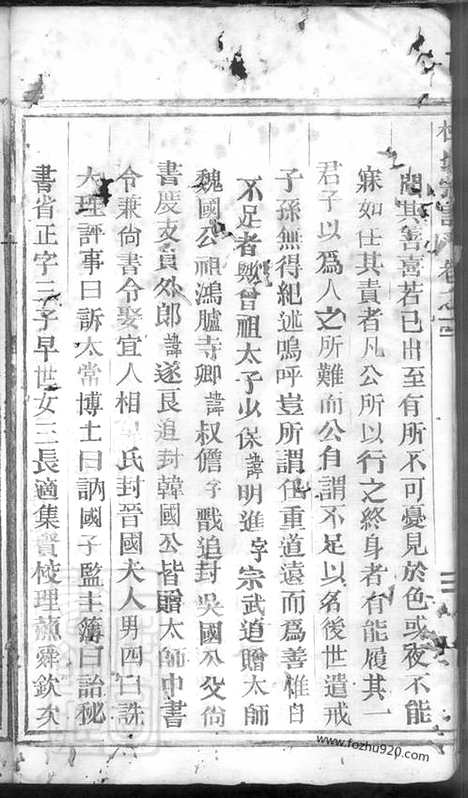 聞其善喜若已出至有所不可憂見於色或夜不能
寐如任其責者凡公所以行之終身者有能履其一
君子以爲人之所難而公自謂不足以名後世遺戒
子孫無得紀述嗚呼豈所謂任重道遠而爲善惟日
不足者歟曾祖太子少保諱明進字宗武追贈太師
魏國公祖鴻臚寺卿諱叔儋字戩追封吳國公父尚
書度支員外郎諱遂良追封韓國公皆贈太師中書
令兼尚書令娶宜人相里氏封晉國夫人男四曰誅
大理評事曰訴太常博士曰訥國子監主簿曰詒秘
書省正字三子早世女三長適集賢校理蘇舜欽矣
卷之三
三
www.fozhu920.com